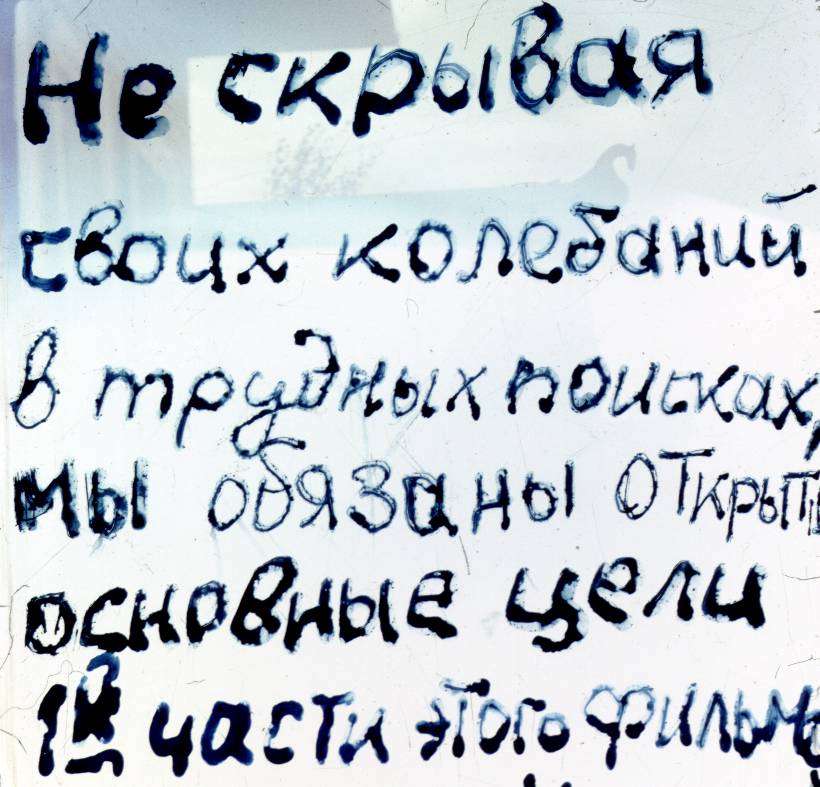 Не скрывая
своих колебаний
в трудных поисках,
мы обязаны открыть
основные цели
1й части этого фильма